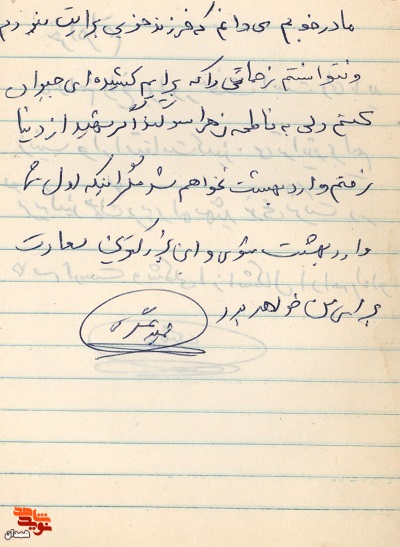 مادر خوبم می دانم که فرزند خوبی برایت نبودم
و نتوانستم زحماتی را که برایم کشیده ای جبران
کنم ولی به فاطمه زهرا سوگند اگر شهید از دنیا
رفتم وارد بهشت نخواهم شد مگر اینکه اول شما
وارد بهشت شوی و این بزرگترین سعادت
برای من خواهد بود
شاهد
نوید